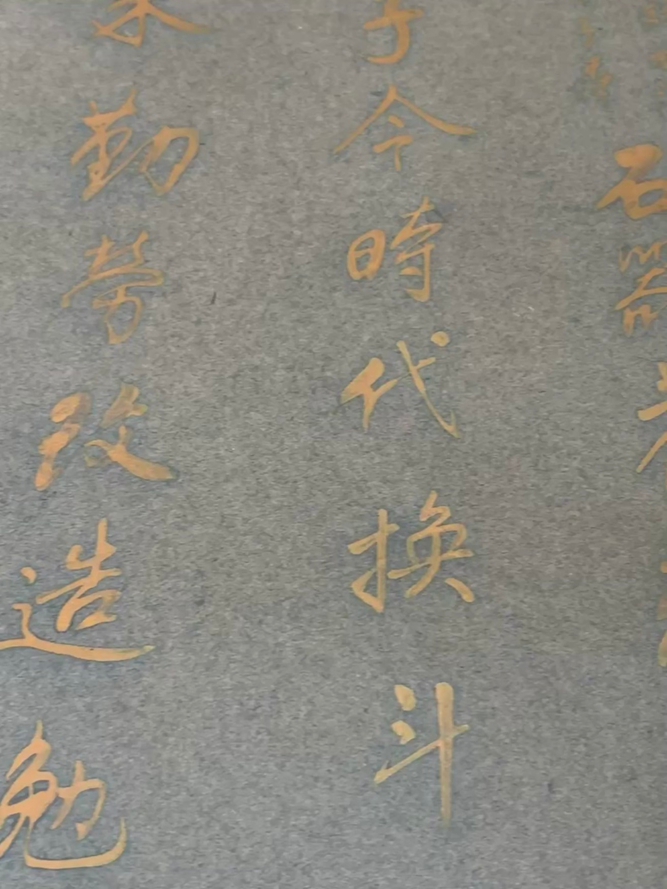 石器
今時代換斗
勤勞改造勉